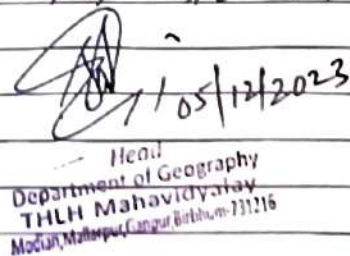 05/12/2023
Head
Department of Geography
THLH Mahavidyalay
Madian, Mallarpur, Gangur, Birbhum-731216